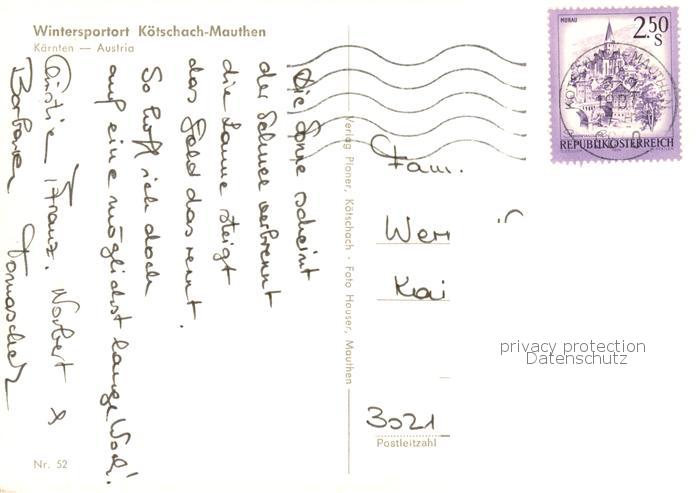 Wintersportort Kötschach-Mauthen
Kärnten — Austria
Die Sonne scheint
der Schnee verbrennt
die Laune steigt
das Geld das rennt.
So hoff ich doch
auf eine möglichst lange Woch!
Christie, Franz, Norbert &
Barbara Tomaschek
Nr. 52
Verlag Ploner, Kötschach - Foto Hauser, Mauthen
MURAU
2.50
S
REPUBLIK ÖSTERREICH
Fam.
Wer
Kai
3021
Postleitzahl
privacy protection
Datenschutz